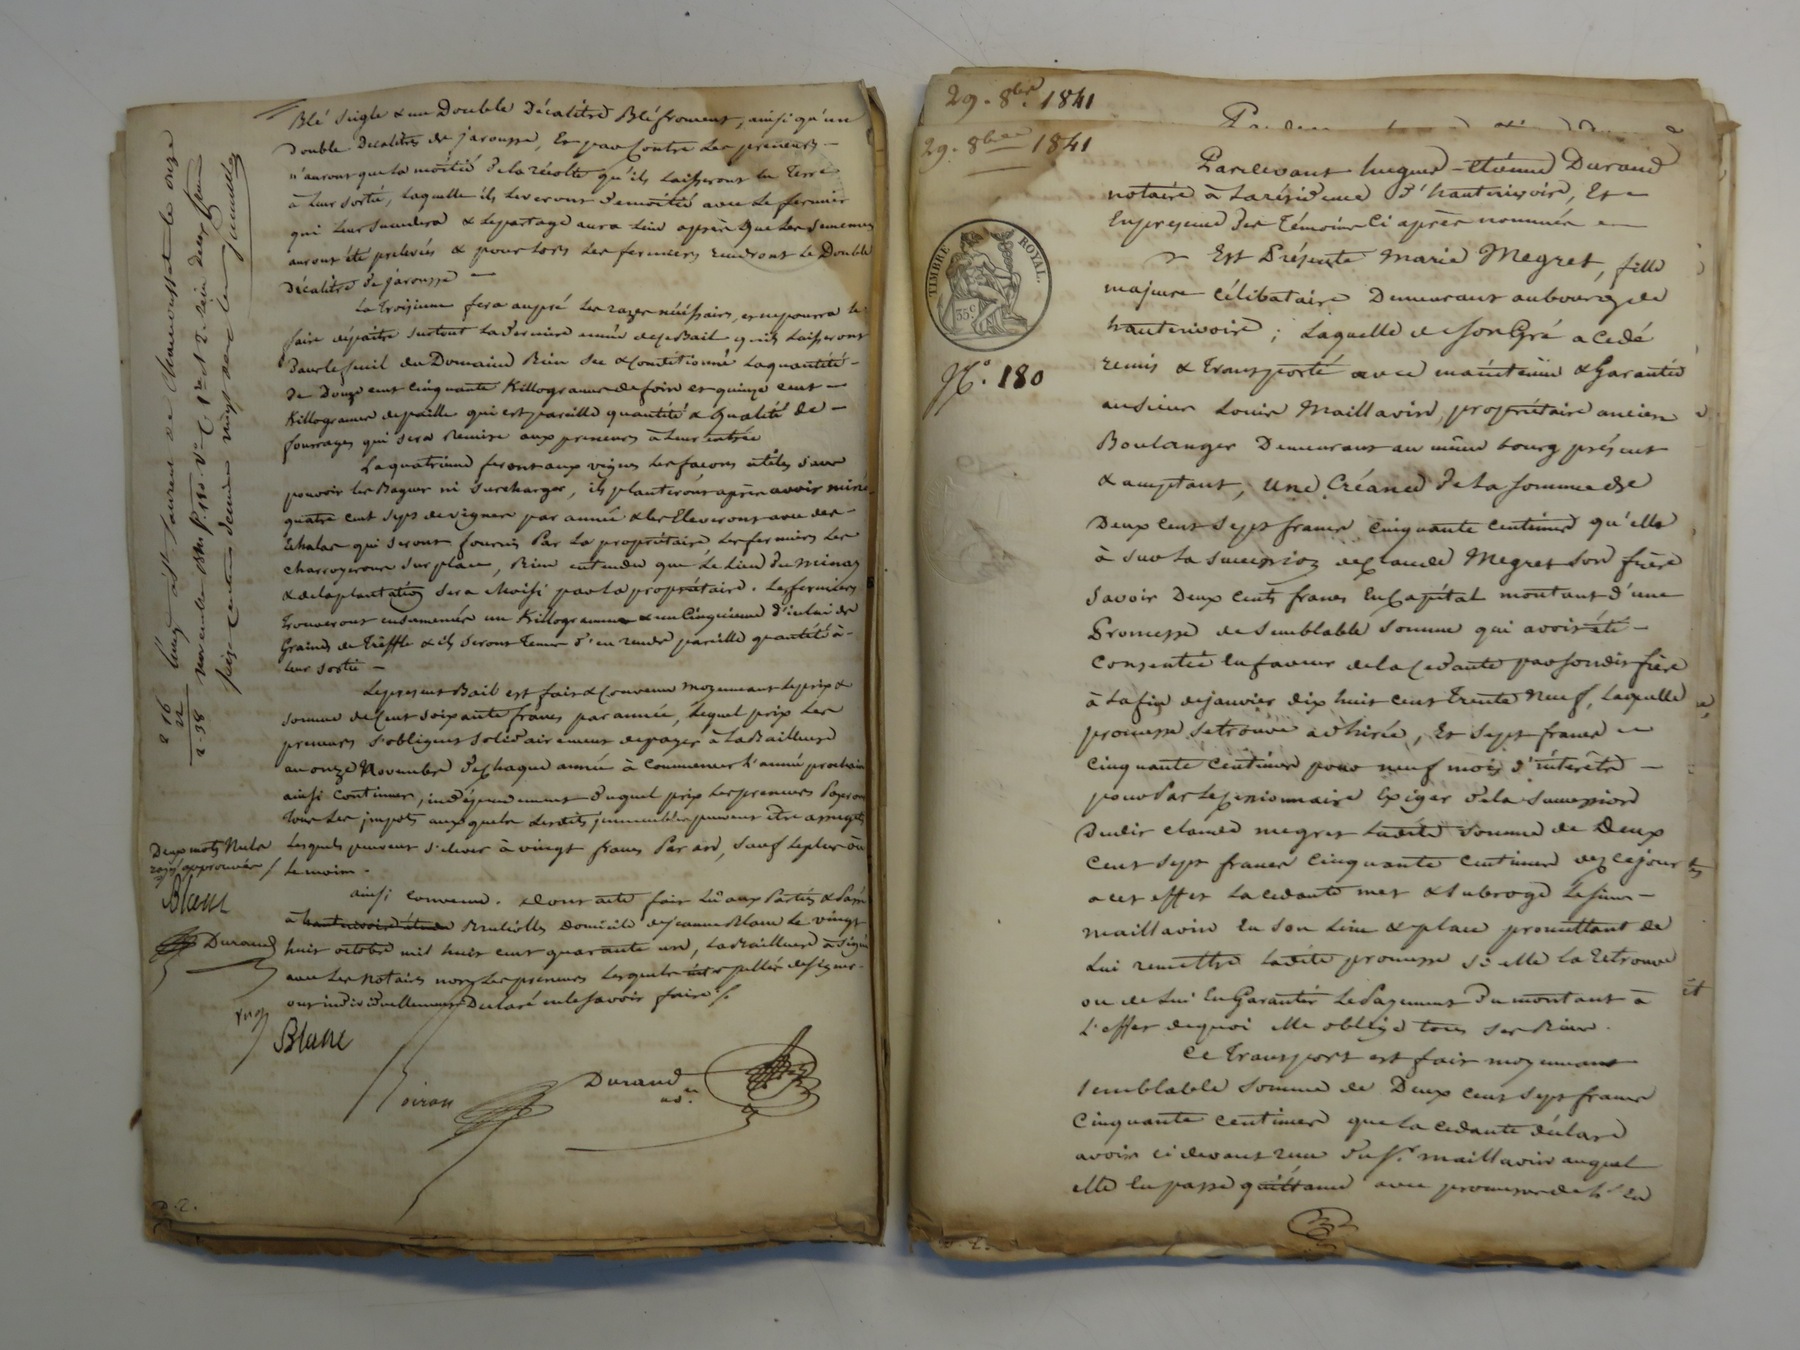 Blé seigle & un Double Décalitre Blé froment, ainsi qu'un
Double Décalitre de jarousse, Et par Contre Les preneurs
n'auront que la moitié de la récolte qu'ils Laisseront en Terre
à Leur sortie, Laquelle ils leveront de moitié avec Le fermier
qui Leur succedera & Le partage aura Lieu après Que Les semences
auront été prelevées & pour Lors Les fermiers rendront Le Double
Décalitre de jarousse
La Troisieme fera au pré Les razes nécéssaires, et ne pourra le
faire dépaitre surtout La Derniere année de ce Bail qu'ils Laisseront
Dans le fenil du Domaine Bien sec & Conditionné La quantité
de Douze cent cinquante Killogrames de foin et quinze cent
Killogrames de paille qui est pareille quantité & Qualité de
fourrages qui sera Remise aux preneurs à Leur entrée
La quatrieme feront aux vignes Les façons utiles sans
pouvoir les ni surcharger, ils planteront après avoir miné
quatre cent seps de vignes par année & les Eleveront avec des
Echalas qui seront fournis Par La propriétaire, Les fermiers Les
charroyeront sur place, Bien entendu que Le Lieu du minage
& de la plantation sera choisi par La propriétaire. Les fermiers
trouveront ensemencée un Killogramme & un Cinquieme d'icelui de
Graine de Trèffle & ils seront Tenus d'en rendre pareille quantité à
leur sortie
Le present Bail est fait & Convenu moyennant Le prix &
somme de Cent soixante francs par année, Lequel prix Les
preneurs s'obligent solidairement de payer à La Bailleuse
au onze Novembre de chaque année à Commencer L'année prochaine
ainsi continuer, indépendamment duquel prix Les preneurs Payeront
Tous Les jmpots auxquels Lesdits jmmeubles peuvent être assugetis
Lesquels peuvent s'elever à vingt francs Par an, sauf Le plus ou
Le moins.
ainsi convenu. & Dont acte fait Lû aux Parties & Passé
à hauterivoire étude Domicile de jeanne Blanc Le vingt
huit octobre mil huit cent quarante un, La Bailleuse à signé
avec Les Notaires non Les preneurs Lesquels interpellés de signer
ont individuellement Declaré ne le savoir faire
Deux mots Nuls
rayés approuvés
Blanc
Durand
Blanc
Durand
Nre.
29. 8bre 1841
29. 8bre 1841
TIMBRE ROYAL.
35 c.
N.° 180
Pardevant hugues-étiéne Durand
notaire à La résidence d'hauterivoire, Et
En presence des Témoins Ci après nommés
Est Présente Marie Megret, fille
majeure célibataire Demeurant au bourg de
hauterivoire ; Laquelle de son Gré a Cedé
remis & Transporté avec maintenüe & Garantie
au sieur Louis Maillavin, propriétaire ancien
Boulanger Demeurant au même bourg présent
& acceptant, Une Créance de La somme de
Deux cent sept francs cinquante centimes qu'elle
à sur La succession de Claude Megret son frère
savoir Deux cents francs En Capital montant d'une
Promesse de semblable somme qui avoit été
Consentie En faveur de la Cedante par son dit frère
à La fin de janvier dix huit cent trente neuf, Laquelle
promesse se trouve adhirée, Et sept francs
cinquante centimes pour neuf mois d'intérêts
pour Par Le Cessionnaire Exiger de La succession
Dudit claude megret Ladite somme de Deux
cent sept francs cinquante centimes dez ce jour
a cet effet La cedante met & subroge Le sieur
maillavin En son Lieu & place promettant de
Lui remettre Ladite promesse si elle La retrouve
ou de Lui En Garantir Le Payement du montant à
L'effet de quoi elle oblige tous ses Biens.
Ce Transport est fait moyennant
semblable somme de Deux cent sept francs
cinquante centimes que La cedante déclare
avoir ci devant reçu du Sr. maillavin auquel
elle En passe quittance avec promesse de L'En